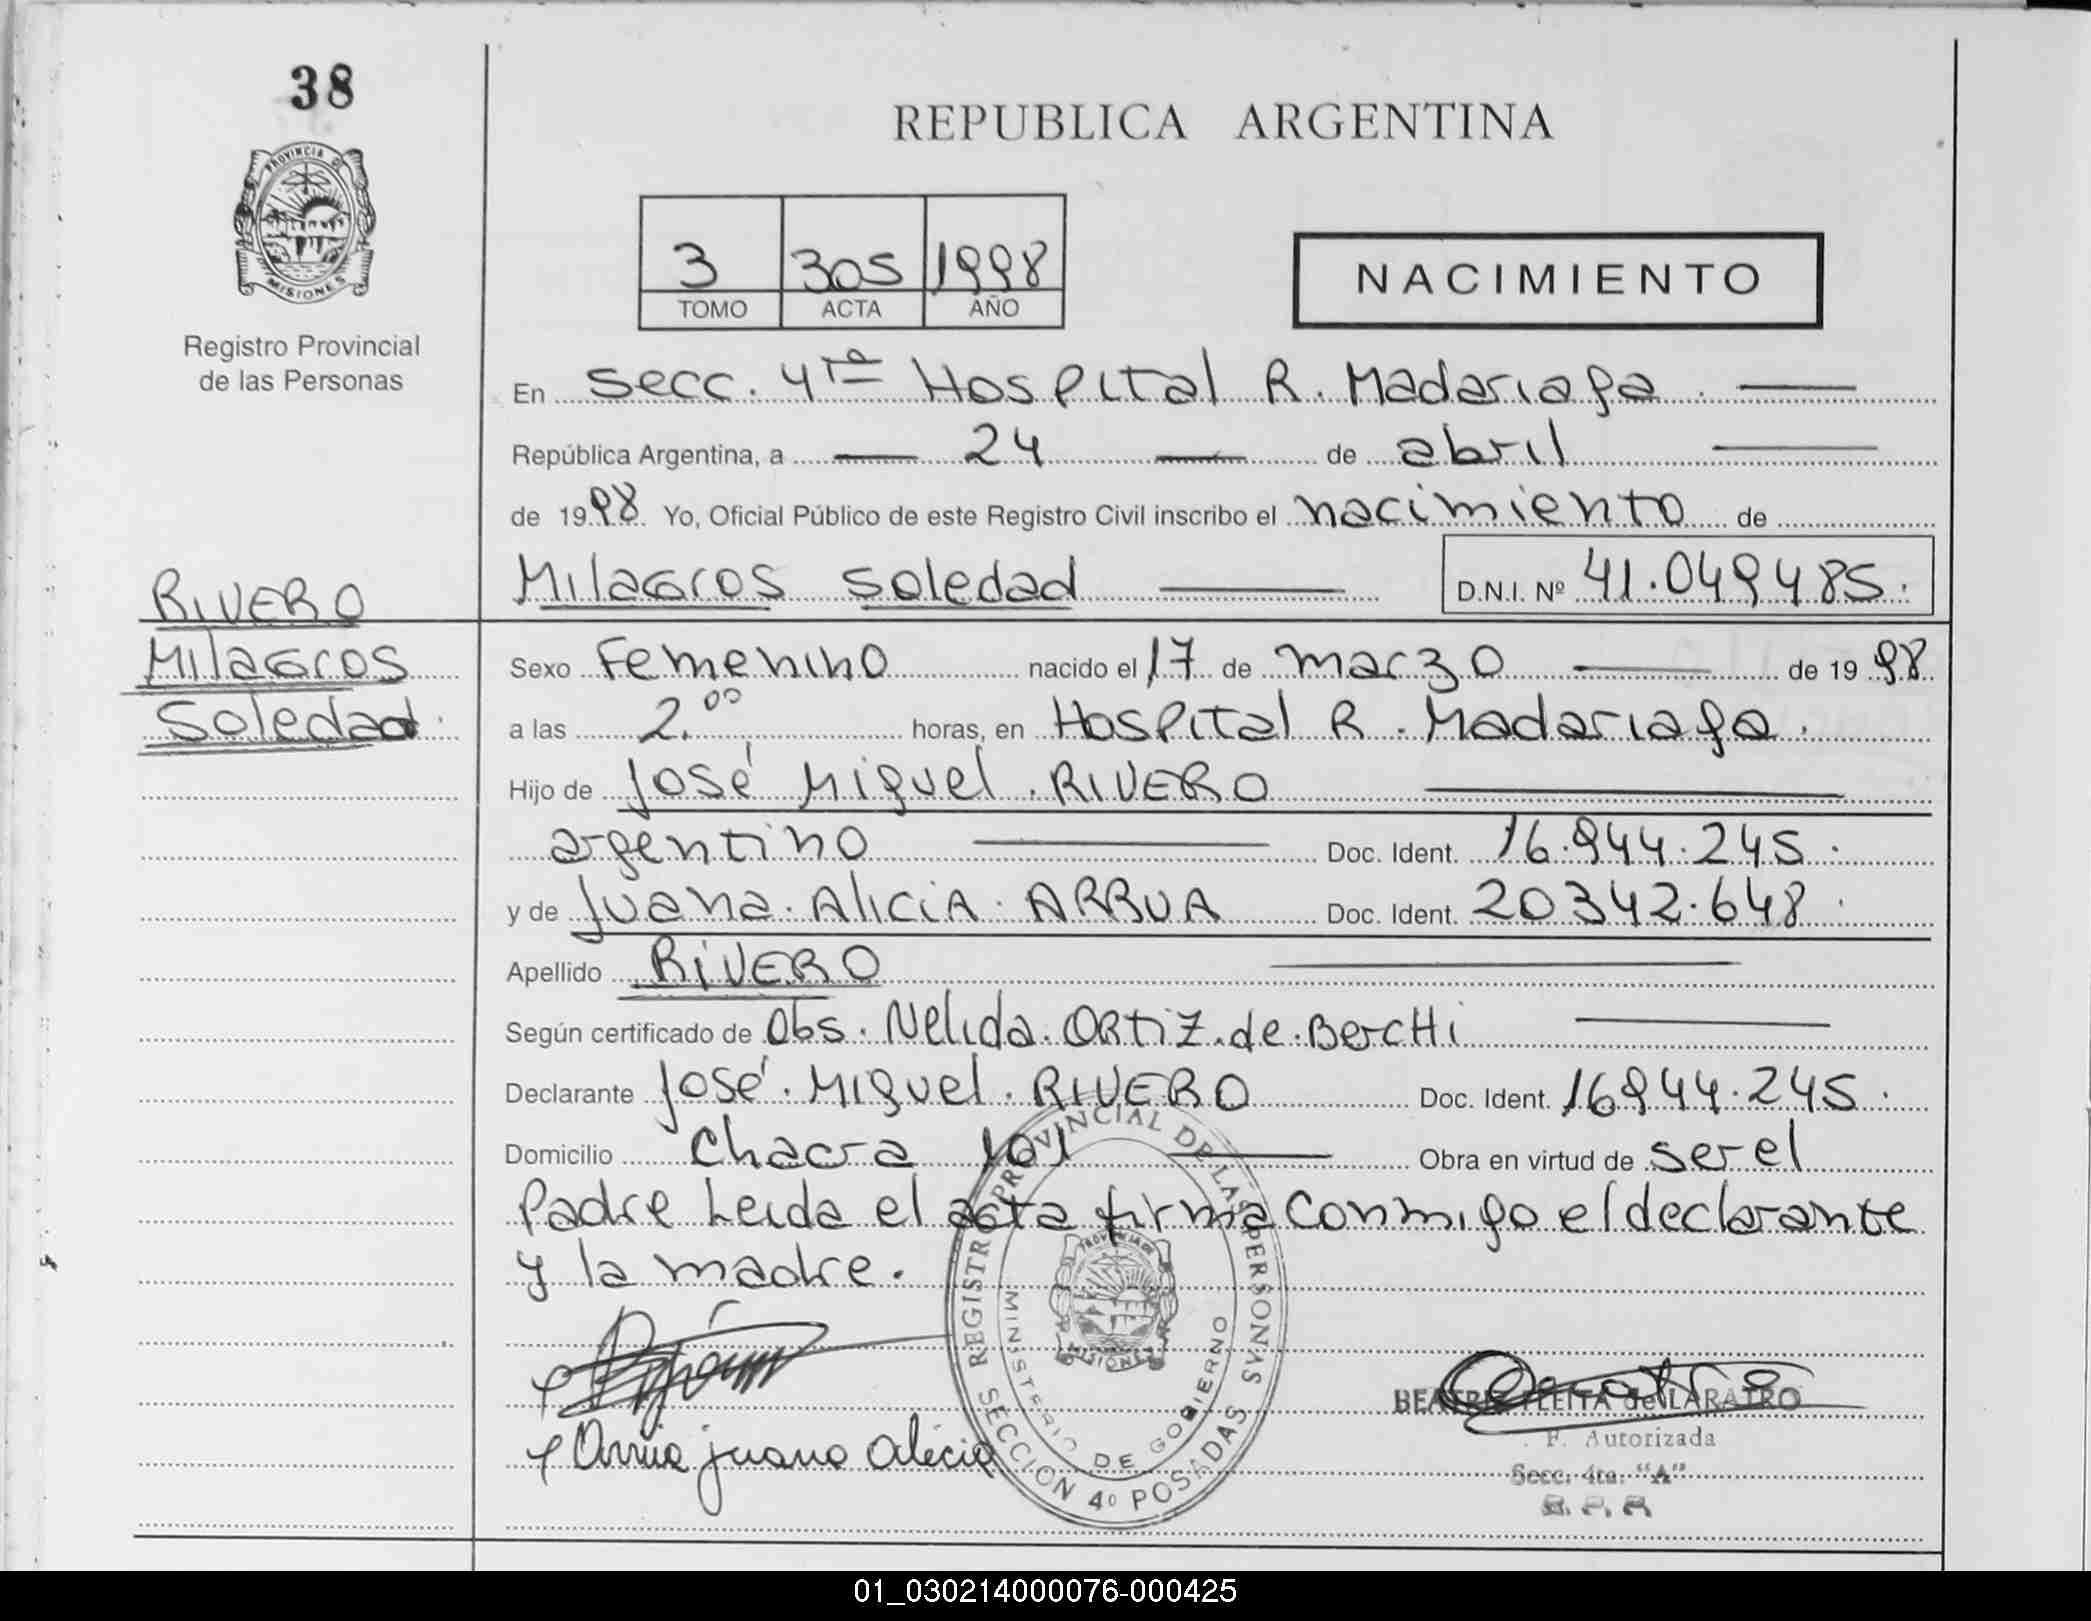 38
PROVINCIA D
MISIONES
Registro Provincial
de las Personas
REPUBLICA ARGENTINA
3 305 1998
TOMO ACTA AÑO
NACIMIENTO
En Secc. 4ta Hospital R. Madariaga
República Argentina, a 24 de abril
de 1998 Yo, Oficial Público de este Registro Civil inscribo el nacimiento de
Milagros Soledad D.N.I. Nº 41.049485.
RIVERO
Milagros
Soledad
Sexo Femenino nacido el 17 de marzo de 1998
a las 2.00 horas, en Hospital R. Madariaga.
Hijo de José Miguel RIVERO
argentino Doc. Ident. 16.944.245.
y de Juana Alicia ARRUA Doc. Ident. 20342.648
Apellido RIVERO
Según certificado de Obs. Nelida Ortiz de Berchi
Declarante José Miguel RIVERO Doc. Ident. 16944.245.
Domicilio Chacra 101 Obra en virtud de ser el
Padre Leida el acta firma conmigo el declarante
y la madre.
Arrua juana alicia
REGISTRO PROVINCIAL DE LAS PERSONAS
MINISTERIO DE GOBIERNO
PROVINCIA DE
MISIONES
SECCION 4º POSADAS
BEATRIZ FLEITA de LARATRO
F. Autorizada
Secc. 4ta. "A"
R. P. P.
01_030214000076-000425